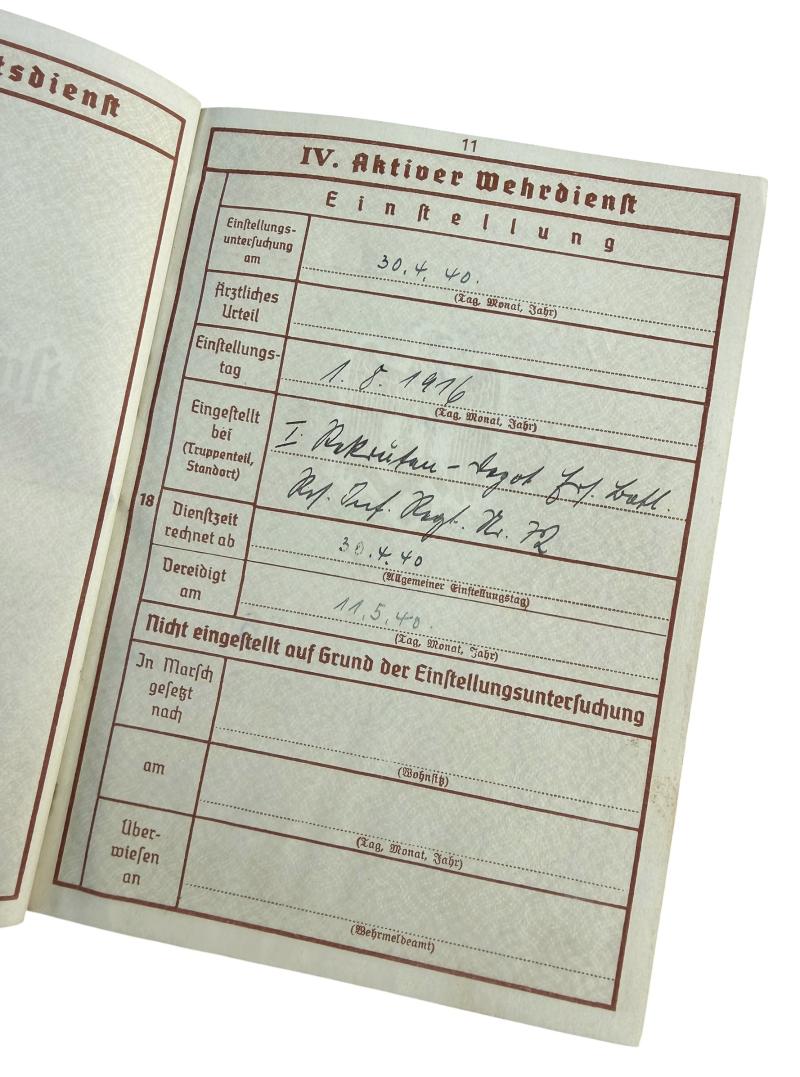 tsdienst
11
IV. Aktiver Wehrdienst
Einstellung
Einstellungs-
untersuchung
am
30.4.40.
(Tag, Monat, Jahr)
Ärztliches
Urteil
Einstellungs-
tag
1. 8. 1916
(Tag, Monat, Jahr)
Eingestellt
bei
(Truppenteil,
Standort)
I. Rekruten-Depot Ers. Batl.
Res. Inf. Regt. Nr. 72
18
Dienstzeit
rechnet ab
30.4.40
(Allgemeiner Einstellungstag)
Vereidigt
am
11.5.40.
(Tag, Monat, Jahr)
Nicht eingestellt auf Grund der Einstellungsuntersuchung
In Marsch
gesetzt
nach
(Wohnsitz)
am
(Tag, Monat, Jahr)
Über-
wiesen
an
(Wehrmeldeamt)